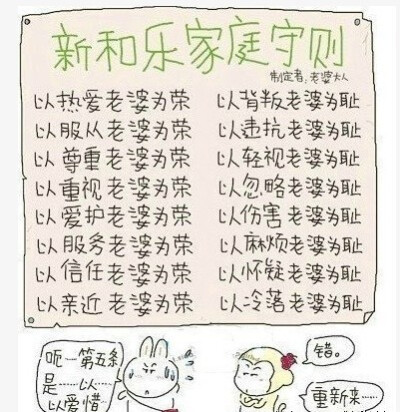 新和乐家庭守则
制定者:老婆大人
以热爱老婆为荣 以背叛老婆为耻
以服从老婆为荣 以违抗老婆为耻
以尊重老婆为荣 以轻视老婆为耻
以重视老婆为荣 以忽略老婆为耻
以爱护老婆为荣 以伤害老婆为耻
以服务老婆为荣 以麻烦老婆为耻
以信任老婆为荣 以怀疑老婆为耻
以亲近老婆为荣 以冷落老婆为耻
呃…第五条
是……以……
以爱惜……
错。
重新来……